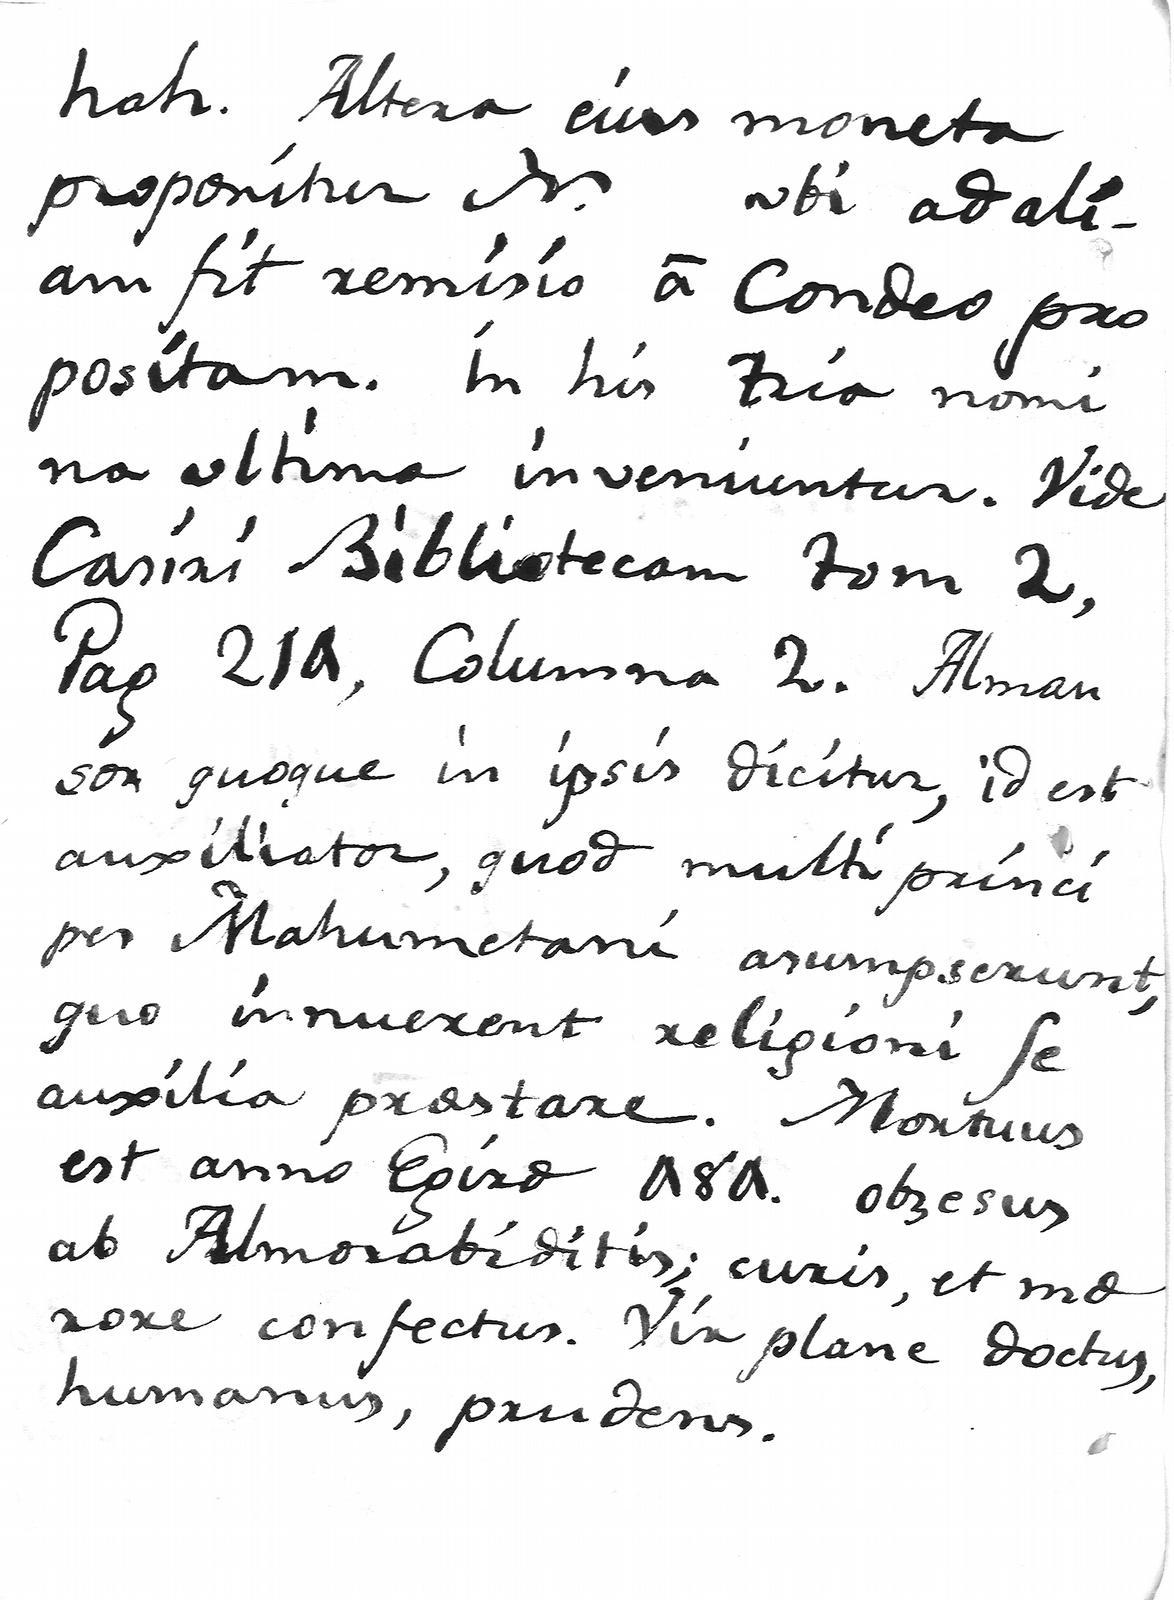 hah. Altera eius moneta
proponitur N. vbi ad ali-
am fit remisio ā Condeo pro
positam. in his tria nomi
na vltima inveniuntur. Vide
Casiri Bibliotecam tom 2,
Pag 211, Columna 2. Alman
sor quoque in ipsis dicitur, id est
auxiliator, quod multi princi
pes Mahumetani asumpserunt,
quo innuerent religioni se
auxilia præstare. Mortuus
est anno Egiræ 181. obsesus
ab Almorabiditis; curis, et mæ
rore confectus. Vir plane doctus,
humanus, prudens.